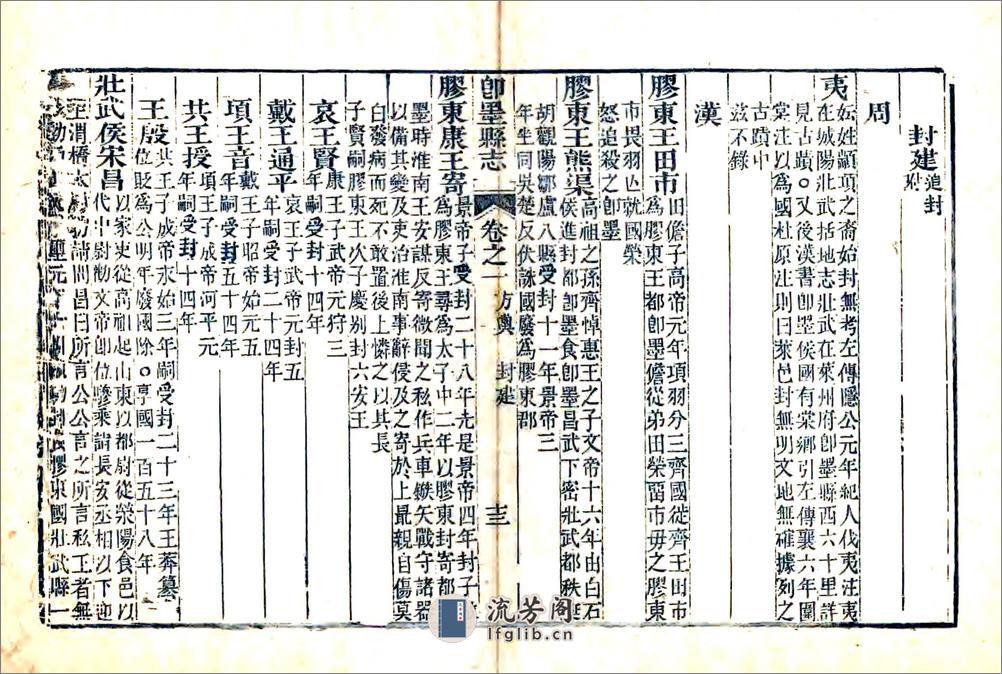 封建追封附
周
夷
妘姓顓項之裔始封無考左傳隱公元年紀人伐夷注夷
在城陽壯武括地志壯武在萊州府卽墨縣西六十里詳
見古蹟○又後漢書卽墨侯國有棠鄉引左傳襄六年圍
棠注以為國杜原注則曰萊邑封無明文地無確據列之
古蹟中
茲不錄
漢
膠東王田市
田儋子高帝元年項羽分三齊國徙齊王田市
為膠東王都卽墨儋從弟田榮畱市毋之膠東
市畏羽亡就國榮
怒追殺之卽墨
膠東王熊渠
高祖之孫齊悼惠王之子文帝十六年由白石
侯進封都卽墨食卽墨昌武下密壯武都秩挺
胡觀陽鄒盧八縣受封十一年景帝三
年坐同吳楚反伏誅國廢爲膠東郡
卽墨縣志
卷之一
方輿
封建
十三
膠東康王寄
景帝子受封二十八年先是景帝四年封子
爲膠東王尋爲太子中二年以膠東封寄都
墨時淮南王安謀反寄微聞之私作兵車鏃矢戰守諸器
以備其變及吏治淮南事辭侵及之寄於上最親自傷莫
白發病而死不敢置後上憐之以其長
子賢嗣膠東王次子慶別封六安王
哀王賢
康王子武帝元狩三
年嗣受封十四年
戴王通平
哀王子武帝元封五
年嗣受封二十四年
項王音
戴王子昭帝始元五
年嗣受封五十四年
共王授
項王子成帝河平元
年嗣受封十四年
王殷
共王子成帝永始三年嗣受封二十三年王莽簒
位貶為公明年廢國除○享國一百五十八年
壯武侯宋昌
以家吏從高祖起山東以都尉從滎陽食邑以
代中尉勸文帝卽位驂乘詣長安丞相以下迎
至渭橋太尉勃請間昌曰所言公公言之所言私王者無
膠東國壯武縣一